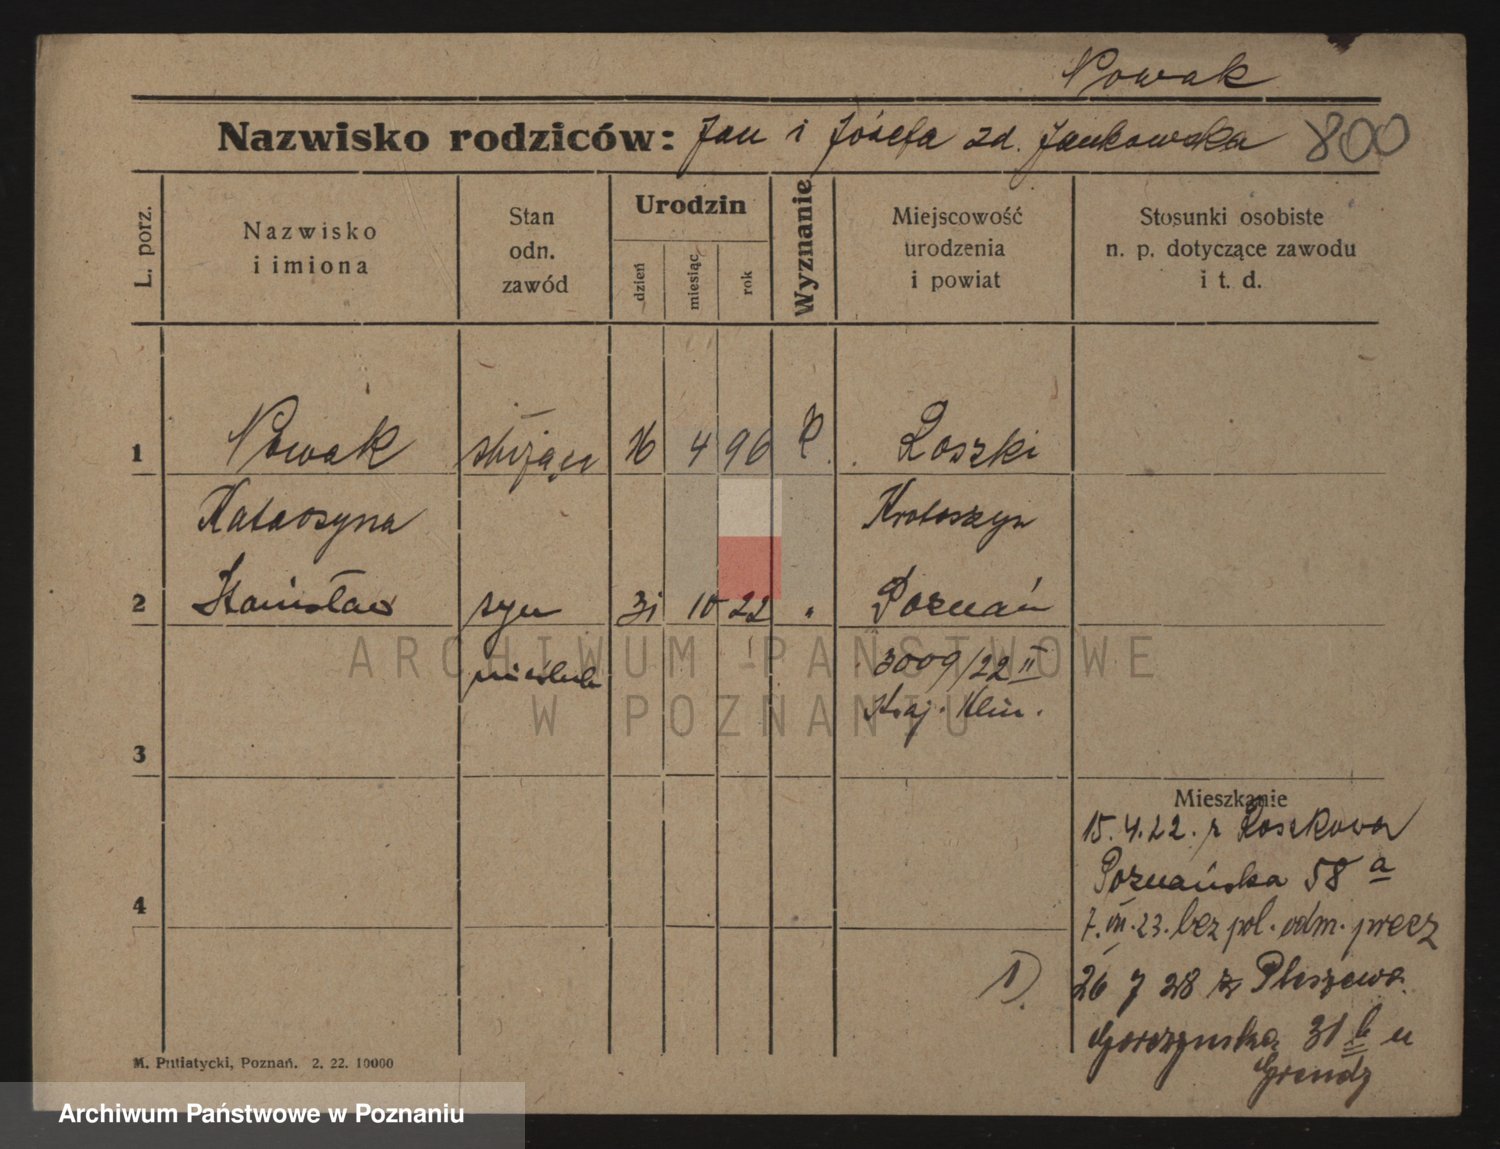 Nowak
Nazwisko rodziców: Jan i Józefa zd. Jankowska 800
L. porz.
Nazwisko
i imiona
Stan
odn.
zawód
Urodzin
dzień
miesiąc
rok
Wyznanie
Miejscowość
urodzenia
i powiat
Stosunki osobiste
n. p. dotyczące zawodu
i t. d.
1 Nowak służąca 16 4 96 K. Roszki
Katarzyna Krotoszyn
2 Stanisław syn 31 10 22 " Poznań
nieślub 3009/22 II
3
Mieszkanie
15.4.22. z Koszkowa
Poznańska 58 a
4
7.VII.23. bez pol. odm. precz
1) 26 7 28 z Pleszewa
Gorczyńska 31 b u
M. Putiatycki, Poznań. 2. 22. 10000
ARCHIWUM PAŃSTWOWE
W POZNANIU
Archiwum Państwowe w Poznaniu